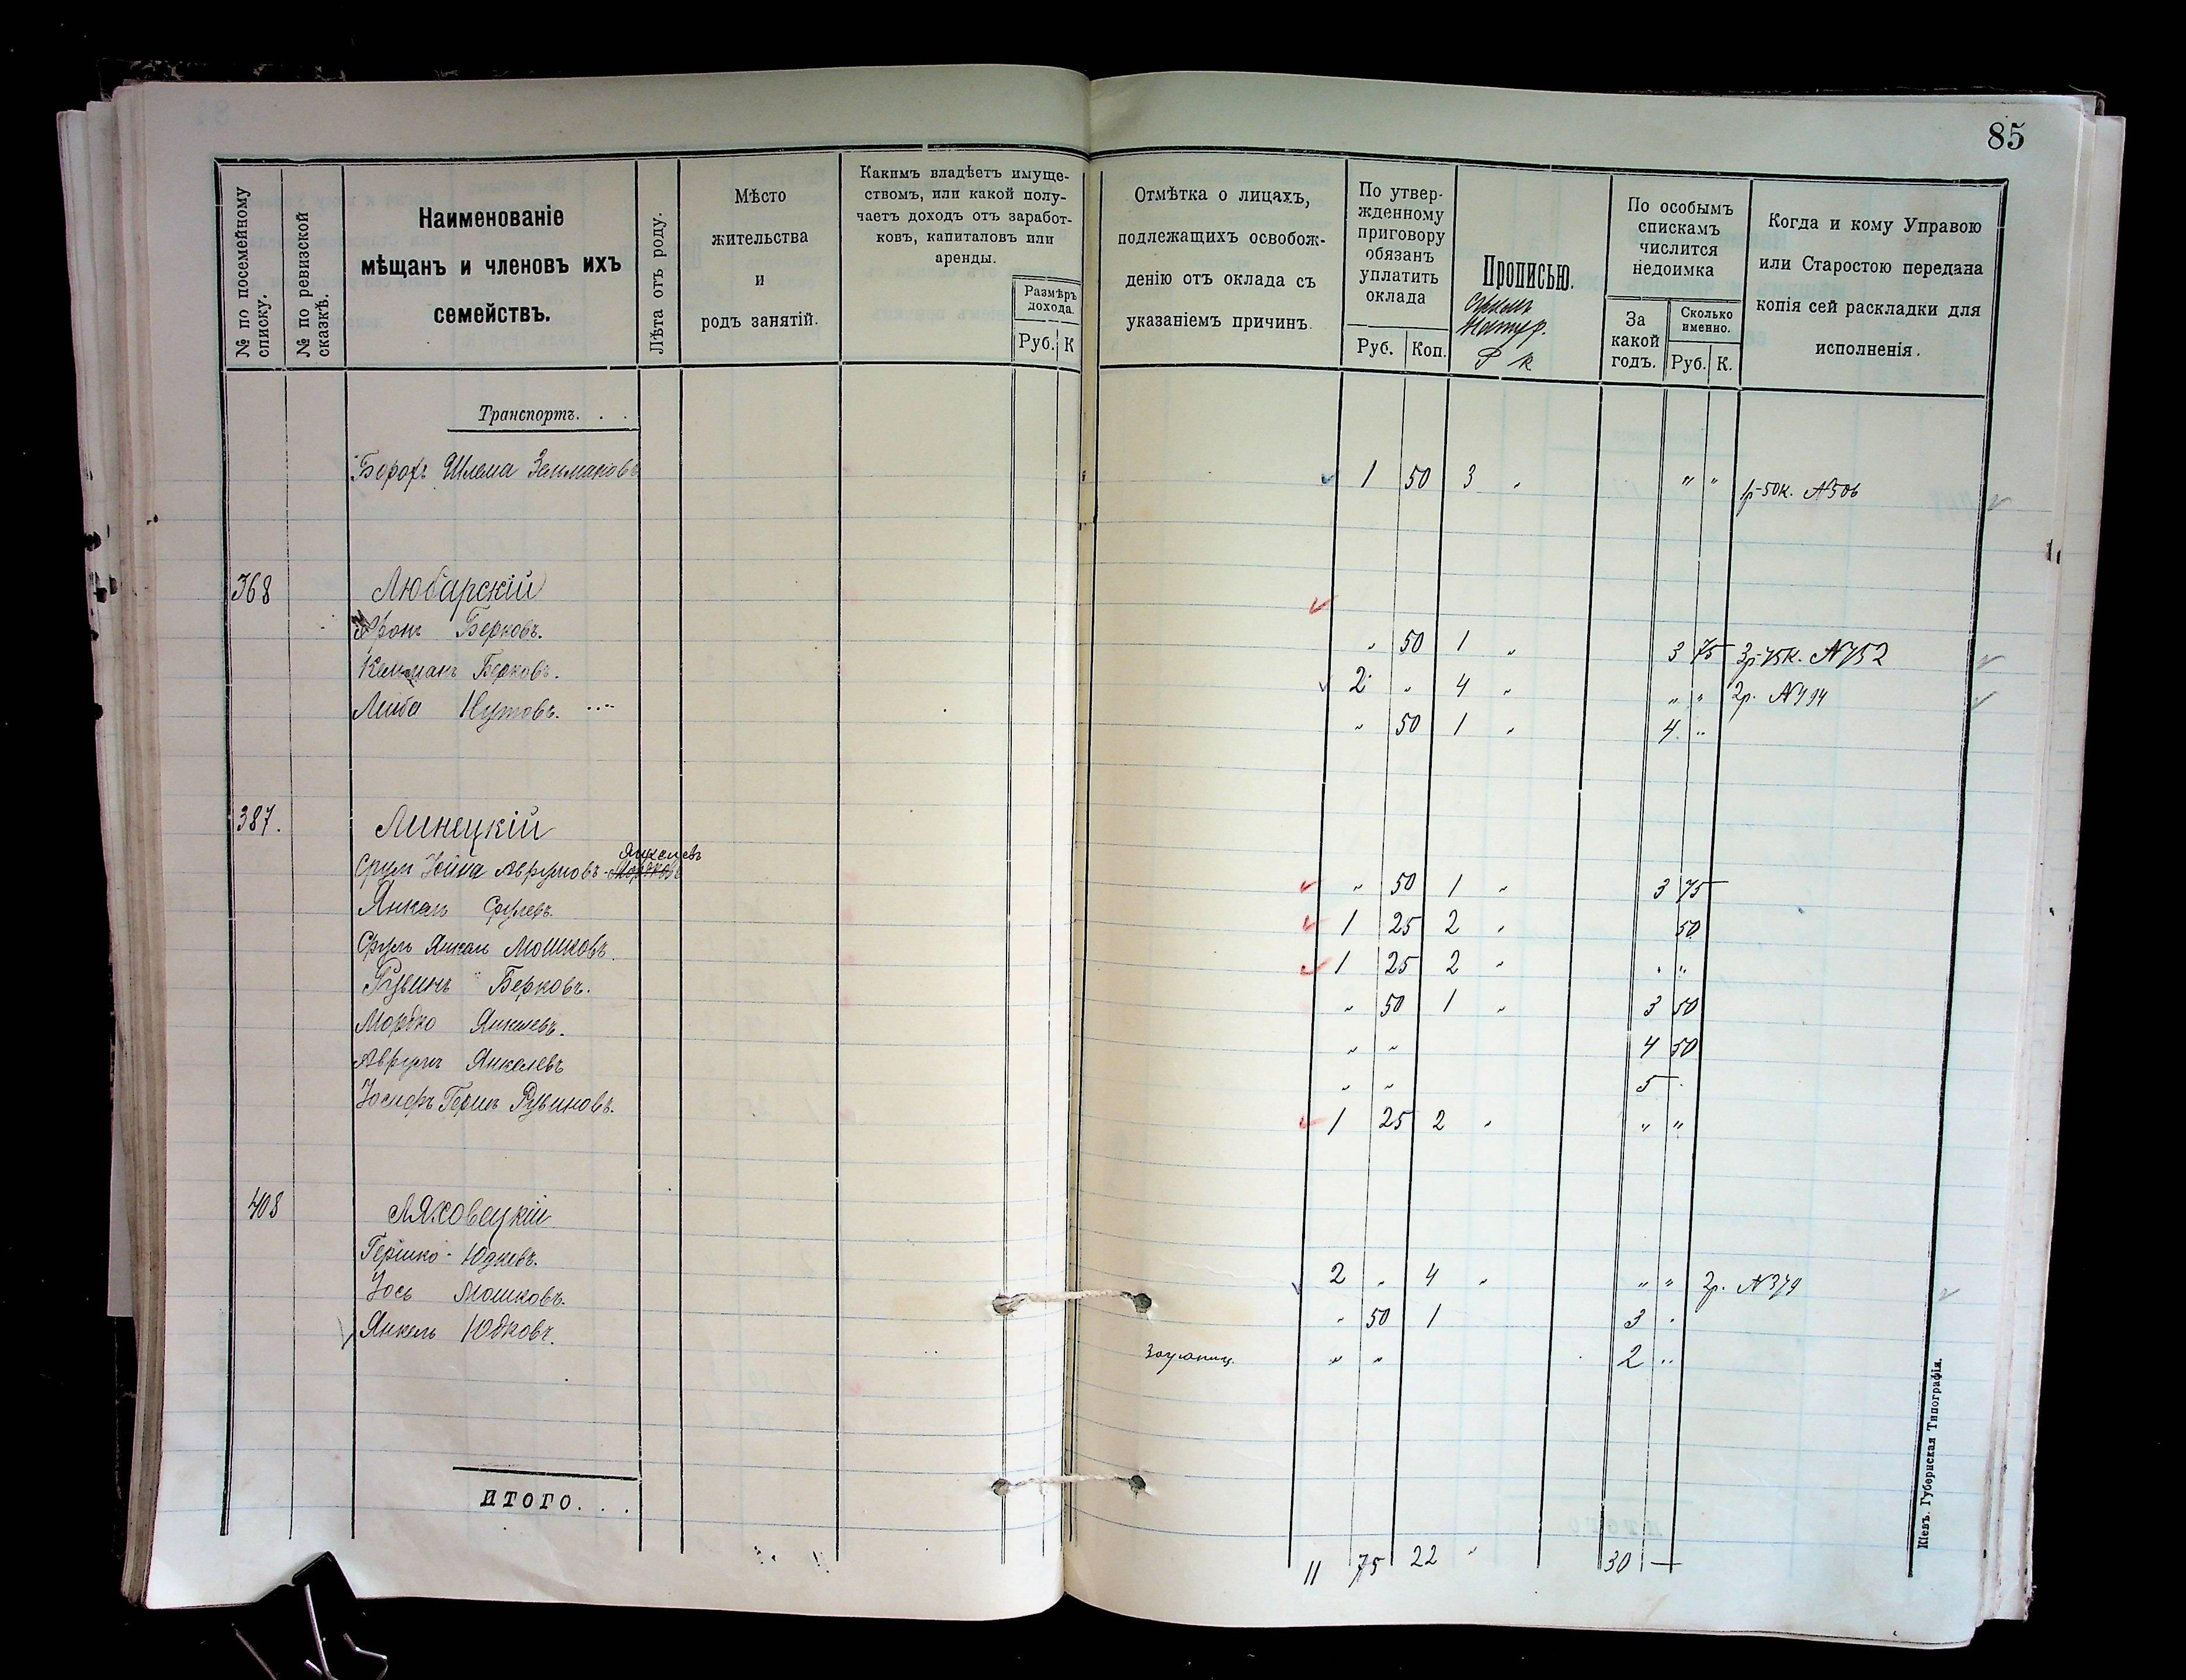 85
№ по посемейному списку.
№ по ревизской сказкѣ.
Наименованіе
мѣщанъ и членовъ ихъ
семействъ.
Лѣта отъ роду.
Мѣсто
жительства
и
родъ занятій.
Какимъ владѣетъ имуще-
ствомъ, или какой полу-
чаетъ доходъ отъ заработ-
ковъ, капиталовъ или
аренды.
Размѣръ
дохода.
Руб. К
Отмѣтка о лицахъ,
подлежащихъ освобож-
денію отъ оклада съ
указаніемъ причинъ.
По утвер-
жденному
приговору
обязанъ
уплатить
оклада
Руб. Коп.
Прописью.
Р к
По особымъ
спискамъ
числится
недоимка
За
какой
годъ.
Сколько
именно.
Руб. К.
Когда и кому Управою
или Старостою передана
копія сей раскладки для
исполненія.
Транспортъ. . .
Шлема Зельмановъ 1 50 3 " " " 1р-50к. №506
368 Любарскій
Аронъ Берковъ. " 50 1 " 3 75 3р-75к. №752
Кельманъ Берковъ. 2 " 4 " " " 2р. №494
Лейба Нутовъ. " 50 1 " 4 "
387. Линецкій
Янкелевъ
Срул Іойна Аврумовъ - Мордковъ " 50 1 " 3 75
Янкель Срулевъ. 1 25 2 " 50
Срулъ Янкель Мошковъ. 1 25 2 " " "
Рувинъ Берковъ. " 50 1 " 3 50
Мордко Янкелевъ. " " 4 50
Аврумъ Янкелевъ " " 5 -
Іосифъ Гершъ Рувиновъ. 1 25 2 " " "
408 Ляховецкій
Гершко - Юдковъ. 2 " 4 " " " 2р. №379
Іось Мошковъ. " 50 1 3 "
Янкель Юдковъ. Заграниц. " " 2 "
ИТОГО. . .
11 75 22 " 30 —
Кіевъ. Губернская Типографія.